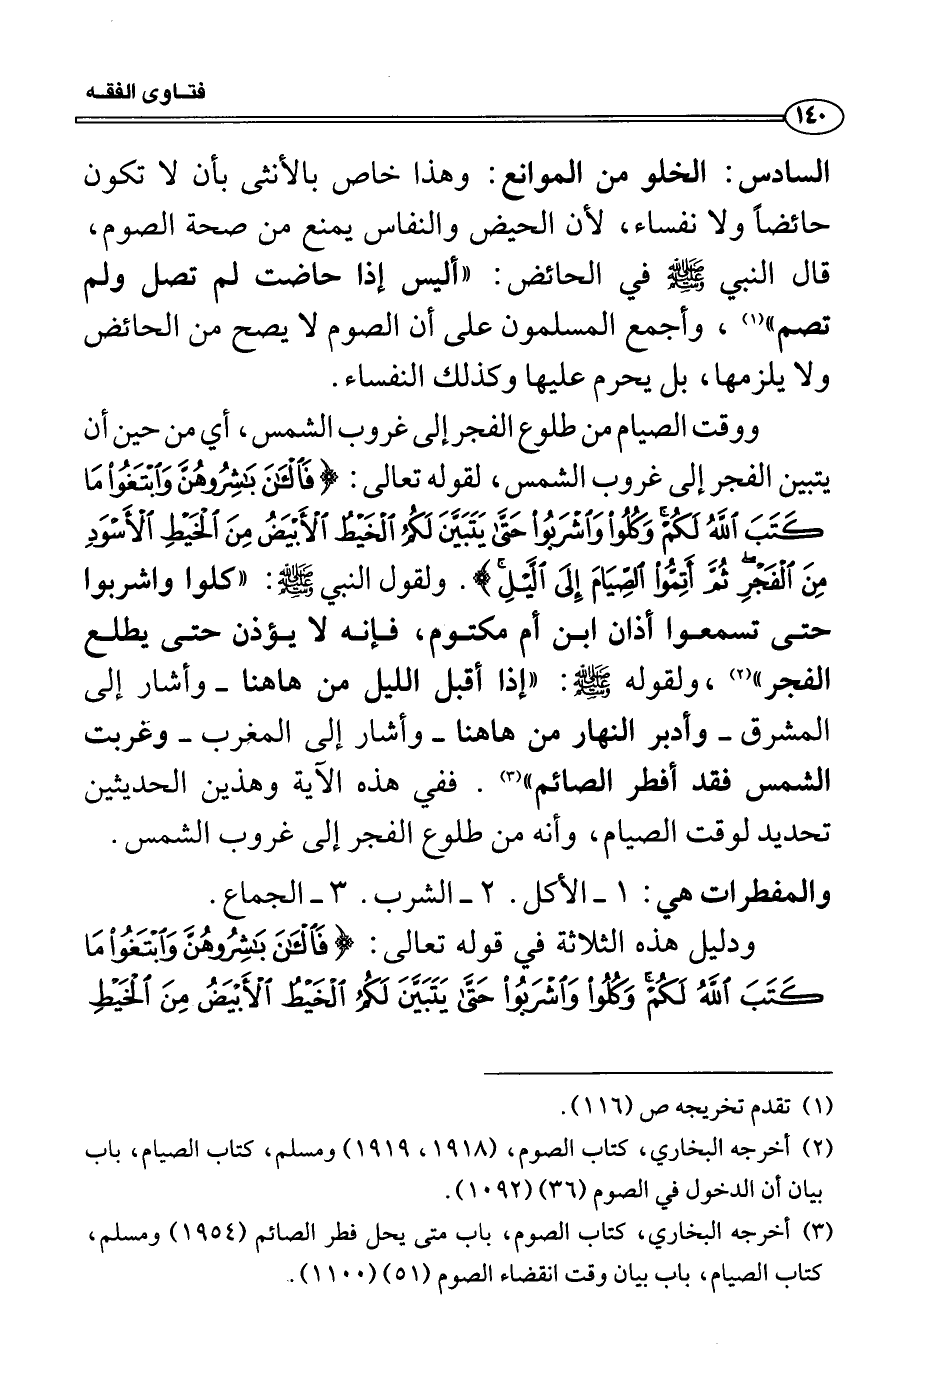 فتاوى الفقه
١٤٠
السادس: الخلو من الموانع: وهذا خاص بالأنثى بأن لا تكون
حائضاً ولا نفساء، لأن الحيض والنفاس يمنع من صحة الصوم،
قال النبي ﷺ في الحائض: «أليس إذا حاضت لم تصل ولم
تصم»(١)، وأجمع المسلمون على أن الصوم لا يصح من الحائض
ولا يلزمها، بل يحرم عليها وكذلك النفساء.
ووقت الصيام من طلوع الفجر إلى غروب الشمس، أي من حين أن
يتبين الفجر إلى غروب الشمس، لقوله تعالى: ﴿فَٱلْـَٰٔنَ بَـٰشِرُوهُنَّ وَٱبْتَغُوا۟ مَا
كَتَبَ ٱللَّهُ لَكُمْ ۚ وَكُلُوا۟ وَٱشْرَبُوا۟ حَتَّىٰ يَتَبَيَّنَ لَكُمُ ٱلْخَيْطُ ٱلْأَبْيَضُ مِنَ ٱلْخَيْطِ ٱلْأَسْوَدِ
مِنَ ٱلْفَجْرِ ۖ ثُمَّ أَتِمُّوا۟ ٱلصِّيَامَ إِلَى ٱلَّيْلِ ۚ﴾. ولقول النبي ﷺ: «كلوا واشربوا
حتى تسمعوا أذان ابن أم مكتوم، فإنه لا يؤذن حتى يطلع
الفجر»(٢)، ولقوله ﷺ: «إذا أقبل الليل من هاهنا ـ وأشار إلى
المشرق ـ وأدبر النهار من هاهنا ـ وأشار إلى المغرب ـ وغربت
الشمس فقد أفطر الصائم»(٣). ففي هذه الآية وهذين الحديثين
تحديد لوقت الصيام، وأنه من طلوع الفجر إلى غروب الشمس.
والمفطرات هي: ١ ـ الأكل. ٢ ـ الشرب. ٣ ـ الجماع.
ودليل هذه الثلاثة في قوله تعالى: ﴿فَٱلْـَٰٔنَ بَـٰشِرُوهُنَّ وَٱبْتَغُوا۟ مَا
كَتَبَ ٱللَّهُ لَكُمْ ۚ وَكُلُوا۟ وَٱشْرَبُوا۟ حَتَّىٰ يَتَبَيَّنَ لَكُمُ ٱلْخَيْطُ ٱلْأَبْيَضُ مِنَ ٱلْخَيْطِ
(١) تقدم تخريجه ص (١١٦).
(٢) أخرجه البخاري، كتاب الصوم، (١٩١٨، ١٩١٩) ومسلم، كتاب الصيام، باب
بيان أن الدخول في الصوم (٣٦) (١٠٩٢).
(٣) أخرجه البخاري، كتاب الصوم، باب متى يحل فطر الصائم (١٩٥٤) ومسلم،
كتاب الصيام، باب بيان وقت انقضاء الصوم (٥١) (١١٠٠).